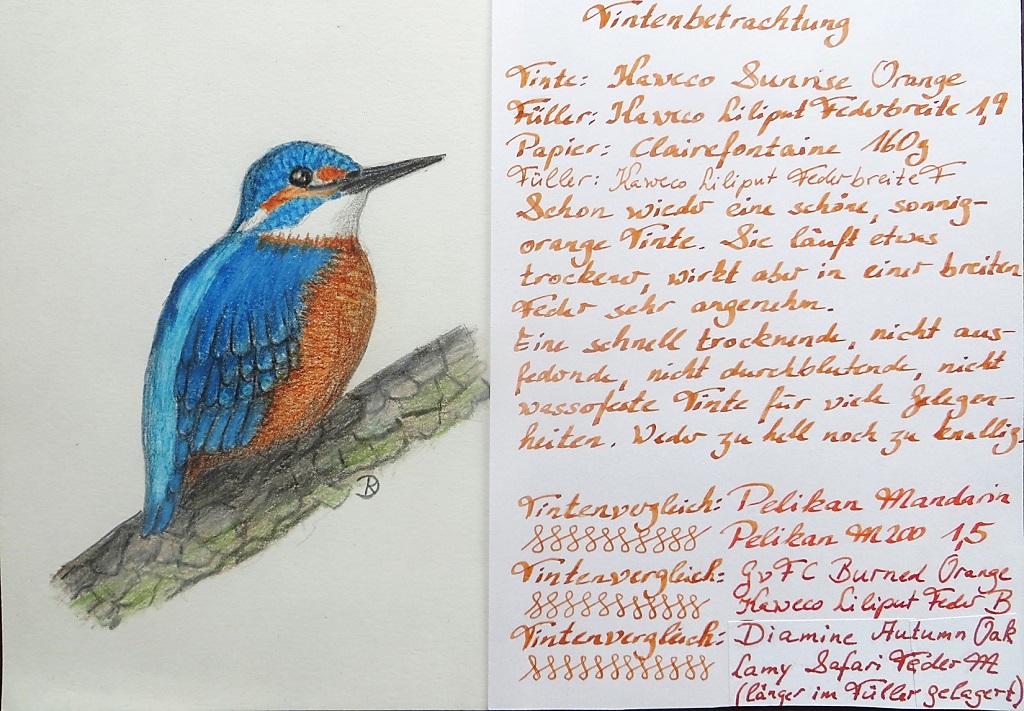 Tintenbetrachtung
Tinte: Kaweco Sunrise Orange
Füller: Kaweco Liliput Federbreite 1,9
Papier: Clairefontaine 160g
Füller: Kaweco Liliput Federbreite F
Schon wieder eine schöne, sonnig-
orange Tinte. Sie läuft etwas
trockener, wirkt aber in einer breiten
Feder sehr angenehm.
Eine schnell trocknende, nicht aus-
federnde, nicht durchblutende, nicht
wasserfeste Tinte für viele Gelegen-
heiten. Weder zu hell noch zu knallig.
Tintenvergleich: Pelikan Mandarin
Pelikan M200 1,5
Tintenvergleich: GvFC Burned Orange
Kaweco Liliput Feder B
Tintenvergleich: Diamine Autumn Oak
Lamy Safari Feder M
(länger im Füller gelagert)